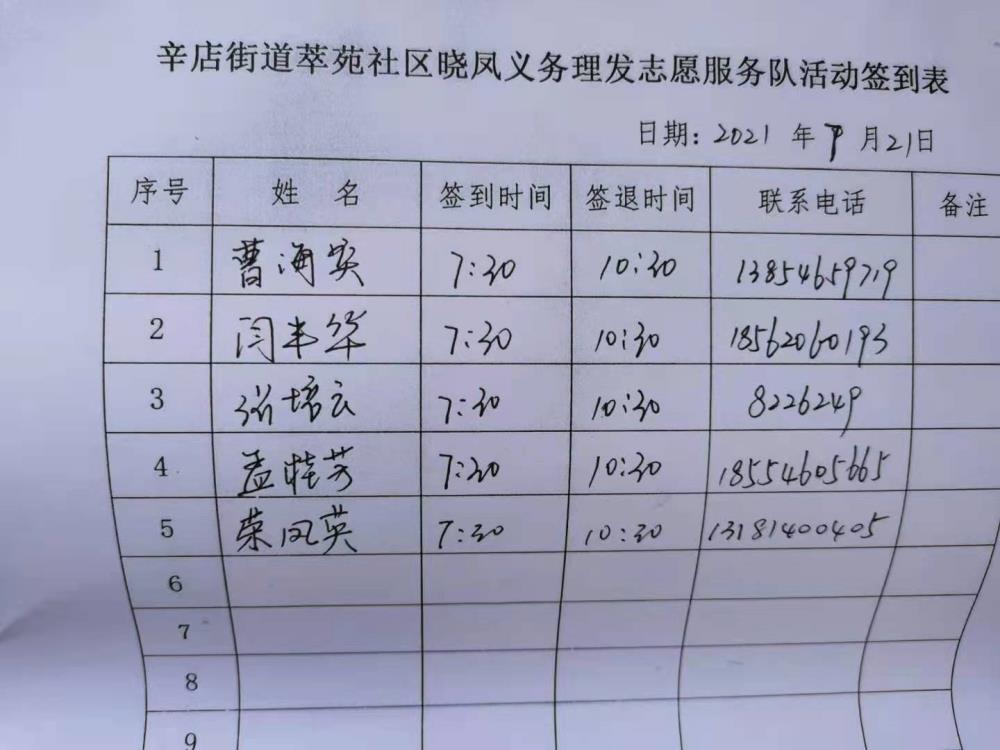 辛店街道萃苑社区晓凤义务理发志愿服务队活动签到表
日期: 2021 年 9 月 21 日
序号 姓 名 签到时间 签退时间 联系电话 备注
1 曹海英 7:30 10:30 13854659719
2 闫丰华 7:30 10:30 18562060193
3 张培云 7:30 10:30 8226249
4 孟桂芳 7:30 10:30 18554605665
5 荣凤英 7:30 10:30 13181400405
6
7
8
9